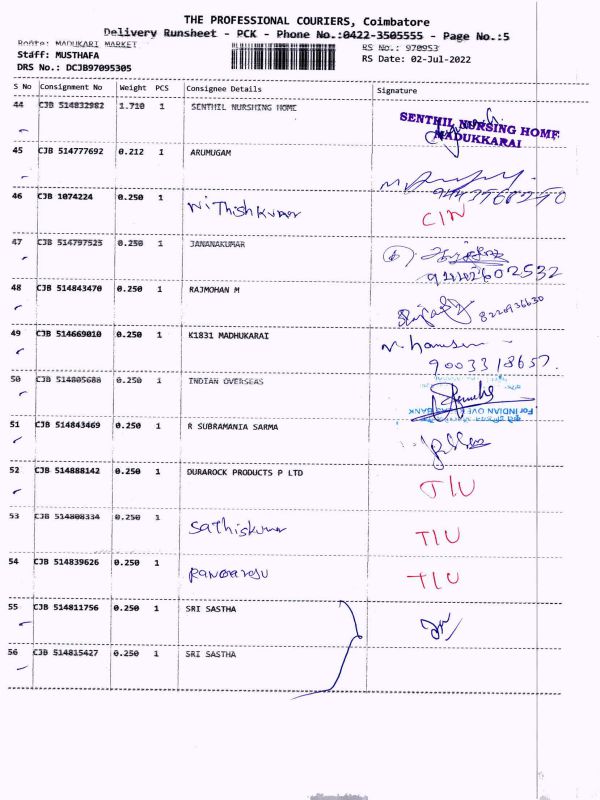 THE PROFESSIONAL COURIERS, Coimbatore
Delivery Runsheet - PCK - Phone No.:0422-3505555 - Page No.:5
Route: MADUKARI MARKET RS No.: 970953
Staff: MUSTHAFA RS Date: 02-Jul-2022
DRS No.: DCJB97095305
S No Consignment No Weight PCS Consignee Details Signature
44 CJB 514832982 1.710 1 SENTHIL NURSHING HOME
SENTHIL NURSING HOME
MADUKKARAI
45 CJB 514777692 0.212 1 ARUMUGAM
46 CJB 1074224 0.250 1 Nithishkumar CIN
47 CJB 514797525 0.250 1 JANANAKUMAR
48 CJB 514843470 0.250 1 RAJMOHAN M 8220936630
49 CJB 514669010 0.250 1 K1831 MADHUKARAI
9003318657.
50 CJB 514805688 0.250 1 INDIAN OVERSEAS
For INDIAN OVERSEAS BANK
51 CJB 514843469 0.250 1 R SUBRAMANIA SARMA
52 CJB 514888142 0.250 1 DURAROCK PRODUCTS P LTD TIU
53 CJB 514808334 0.250 1 Sathiskumar TIU
54 CJB 514839626 0.250 1 TIU
55 CJB 514811756 0.250 1 SRI SASTHA
56 CJB 514815427 0.250 1 SRI SASTHA